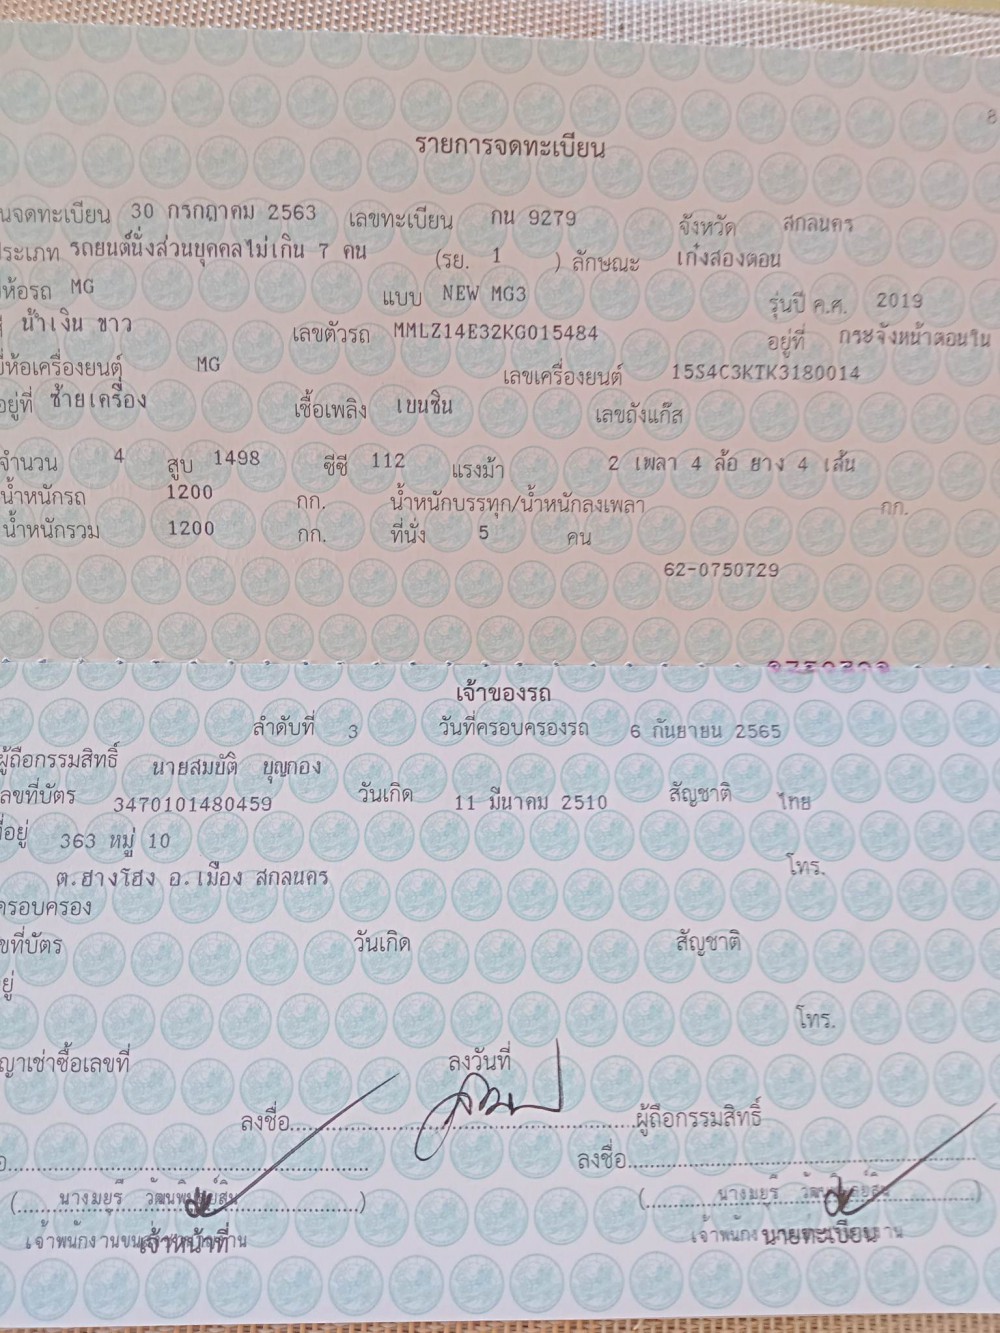 8
รายการจดทะเบียน
นจดทะเบียน 30 กรกฎาคม 2563 เลขทะเบียน กน 9279 จังหวัด สกลนคร
ประเภท รถยนต์นั่งส่วนบุคคลไม่เกิน 7 คน (รย. 1 ) ลักษณะ เก๋งสองตอน
ห้อรถ MG แบบ NEW MG3 รุ่นปี ค.ศ. 2019
น้ำเงิน ขาว เลขตัวรถ MMLZ14E32KG015484 อยู่ที่ กระจังหน้าตอนใน
ห้อเครื่องยนต์ MG เลขเครื่องยนต์ 15S4C3KTK3180014
อยู่ที่ ซ้ายเครื่อง เชื้อเพลิง เบนซิน เลขถังแก๊ส
จำนวน 4 สูบ 1498 ซีซี 112 แรงม้า 2 เพลา 4 ล้อ ยาง 4 เส้น
น้ำหนักรถ 1200 กก. น้ำหนักบรรทุก/น้ำหนักลงเพลา กก.
น้ำหนักรวม 1200 กก. ที่นั่ง 5 คน
62-0750729
เจ้าของรถ
ลำดับที่ 3 วันที่ครอบครองรถ 6 กันยายน 2565
ผู้ถือกรรมสิทธิ์ นายสมบัติ บุญกอง
ลขที่บัตร 3470101480459 วันเกิด 11 มีนาคม 2510 สัญชาติ ไทย
ที่อยู่ 363 หมู่ 10
ต.ฮางโฮง อ.เมือง สกลนคร โทร.
ครอบครอง
ขที่บัตร วันเกิด สัญชาติ
ยู่
โทร.
ญาเช่าซื้อเลขที่ ลงวันที่
ลงชื่อ ผู้ถือกรรมสิทธิ์
ลงชื่อ
( นางมยุรี ) ( นางมยุรี )
เจ้าหน้าที่ นายทะเบียน